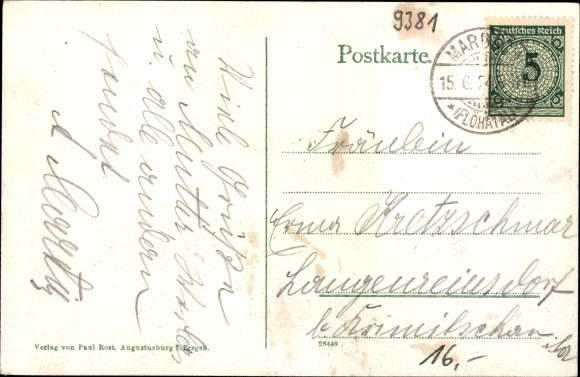 9381
Postkarte.
Deutsches Reich
5
MARB
15.6.2
*(FLÖHATAL)
Viele Grüße
an Mutter
u. alle andern
sendet
Fräulein
Erna Kretzschmar
Langenreinsdorf
b. Krimitschau
i. Sa.
16,-
28448
Verlag von Paul Rost, Augustusburg i. Erzgeb.